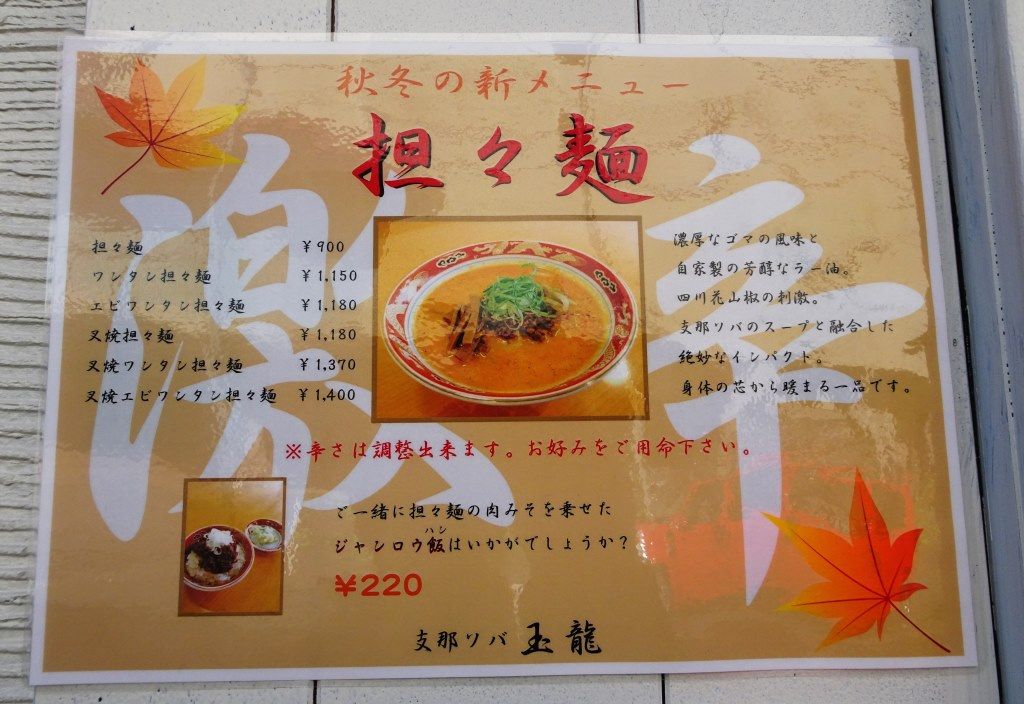 秋冬の新メニュー
担々麺
激辛
担々麺 ￥900
ワンタン担々麺 ￥1,150
エビワンタン担々麺 ￥1,180
叉焼担々麺 ￥1,180
叉焼ワンタン担々麺 ￥1,370
叉焼エビワンタン担々麺 ￥1,400
濃厚なゴマの風味と
自家製の芳醇なラー油。
四川花山椒の刺激。
支那ソバのスープと融合した
絶妙なインパクト。
身体の芯から暖まる一品です。
※辛さは調整出来ます。お好みをご用命下さい。
ご一緒に担々麺の肉みそを乗せた
ハン
ジャンロウ飯はいかがでしょうか？
￥220
支那ソバ 玉龍